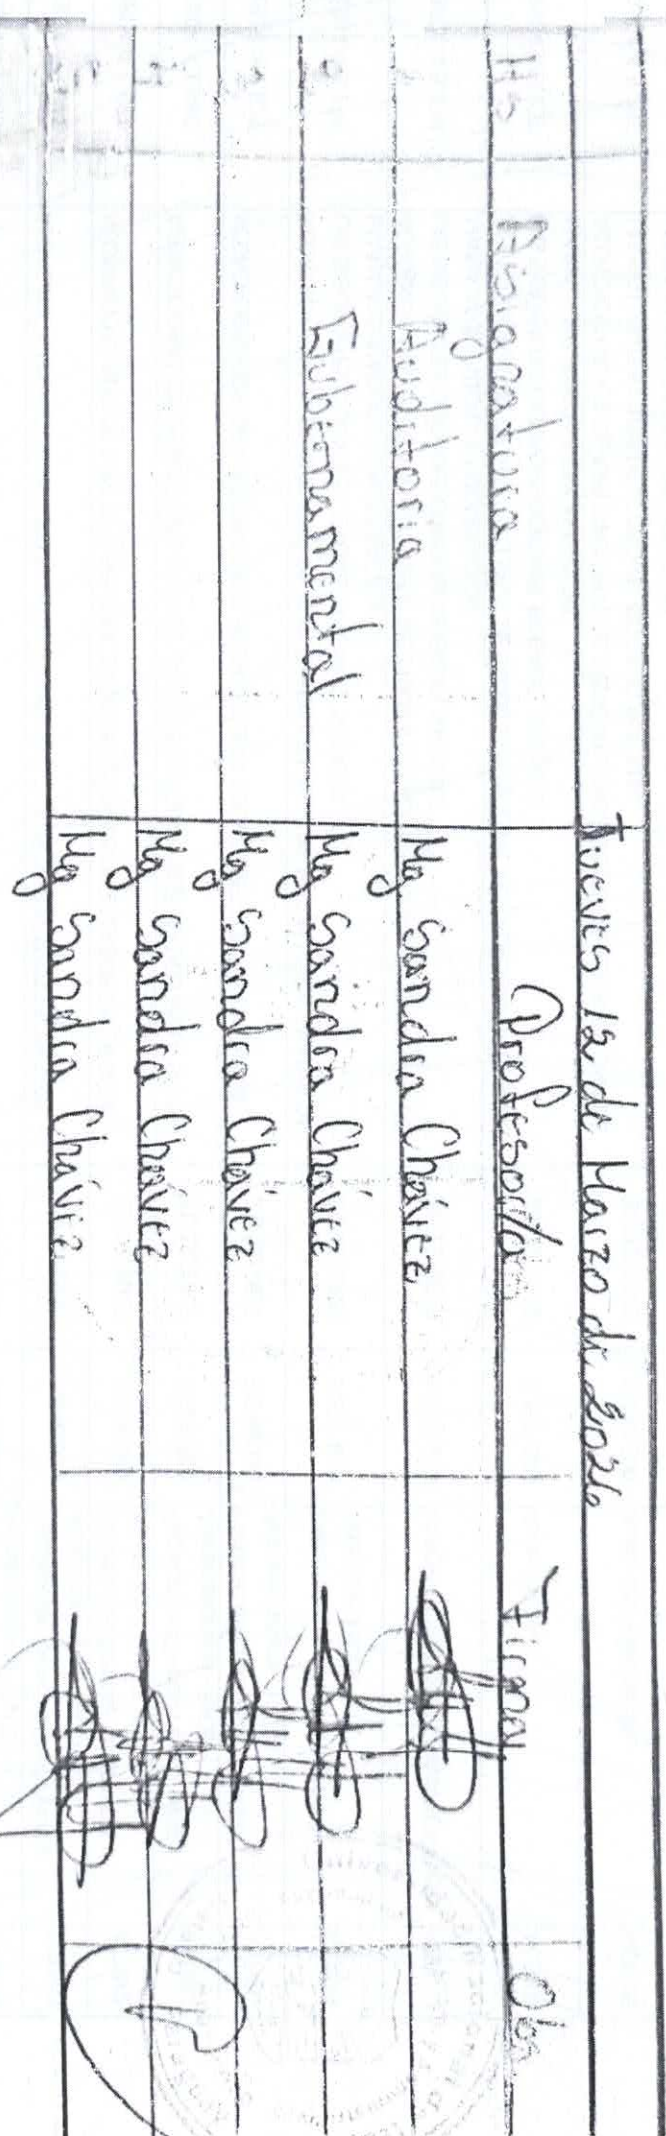 Jueves 12 de Marzo de 2026
Hs Asignatura Profesor/a Firma Obs
Auditoria Mg Sandra Chávez
Gubernamental Mg Sandra Chávez
Mg Sandra Chávez
Mg Sandra Chávez
Mg Sandra Chávez